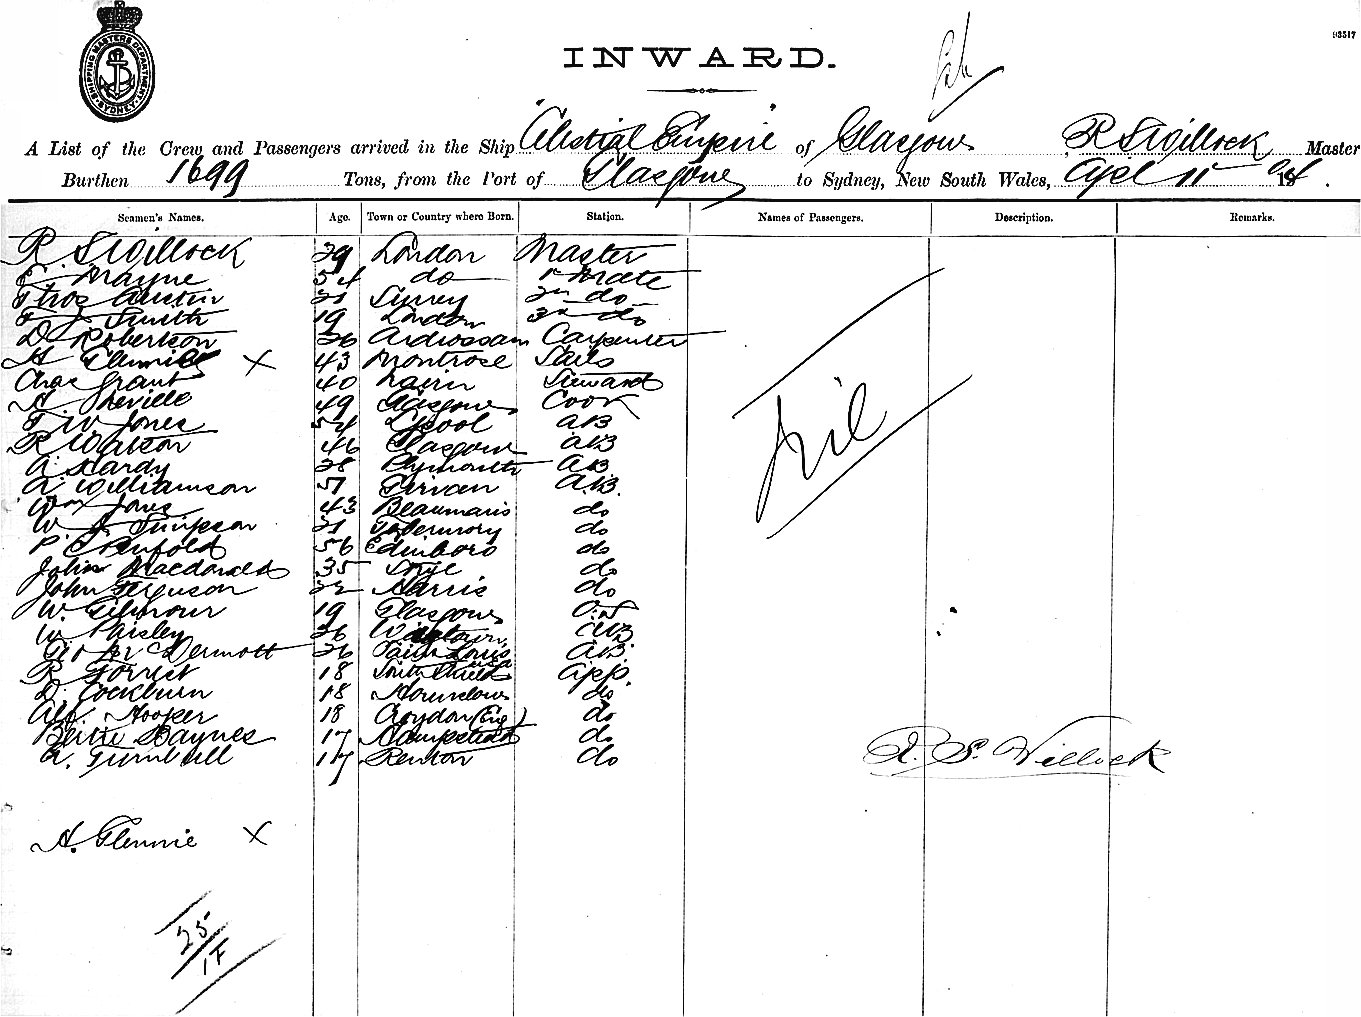 SHIPPING MASTERS DEPARTMENT SYDNEY
93517
INWARD.
A List of the Crew and Passengers arrived in the Ship "Celestial Empire" of Glasgow R S Willock Master
Burthen 1699 Tons, from the Port of Glasgow to Sydney, New South Wales, April 11
Seamen's Names. Age. Town or Country where Born. Station. Names of Passengers. Description. Remarks.
R S Willock 29 London Master
Mayne 54 do 1st Mate
Thos Austin 21 Surrey 2nd do
F J Smith 19 London 3rd do
D Robertson 26 Ardrossan Carpenter
X 43 Montrose Sails
Chas Grant 40 Nairn Steward
A Neville 49 Glasgow Cook
F W Jones 54 L'pool AB
R Watson 46 Glasgow AB
A Hardy 28 Plymouth AB
A Williamson 51 Girvan AB.
Wm Jones 43 Beaumaris do
W J Simpson 21 Tobermory do
P C Penfold 56 Edinboro do
John Macdonald 35 Skye do
John Ferguson 22 Harris do
W Gilmour 19 Glasgow O.S
W Paisley 26 Wigtown AB
Geo McDermott 26 Saint Louis USA AB.
R Forrest 18 South Shields App.
D. Cockburn 18 Hounslow do
Alf. Hooper 18 Croydon (Eng) do
Bertie Baynes 17 Hampstead do
A. Turnbull 17 Renton do
Nil
R. S. Willock
A. Glennie X
25
17